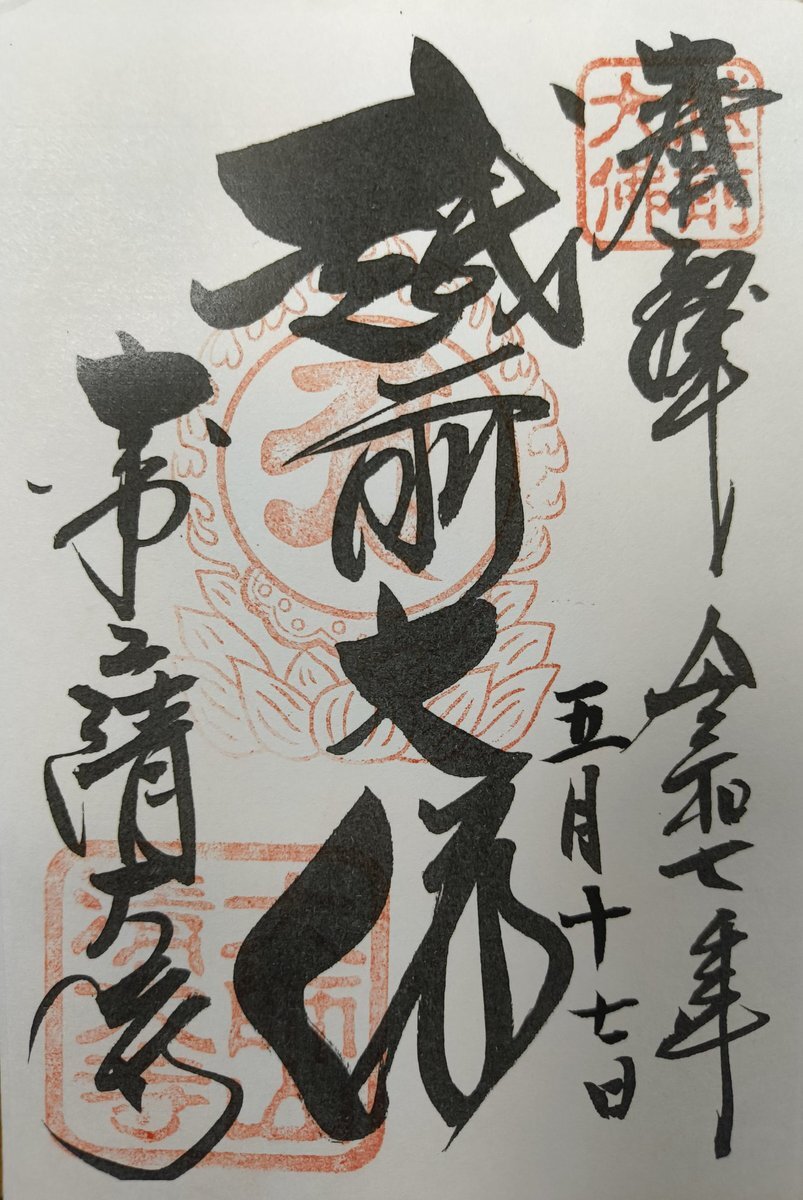 奉拝 令和七年
五月十七日
越前大佛
大師山清大寺
越前
大佛
大師山
清大寺